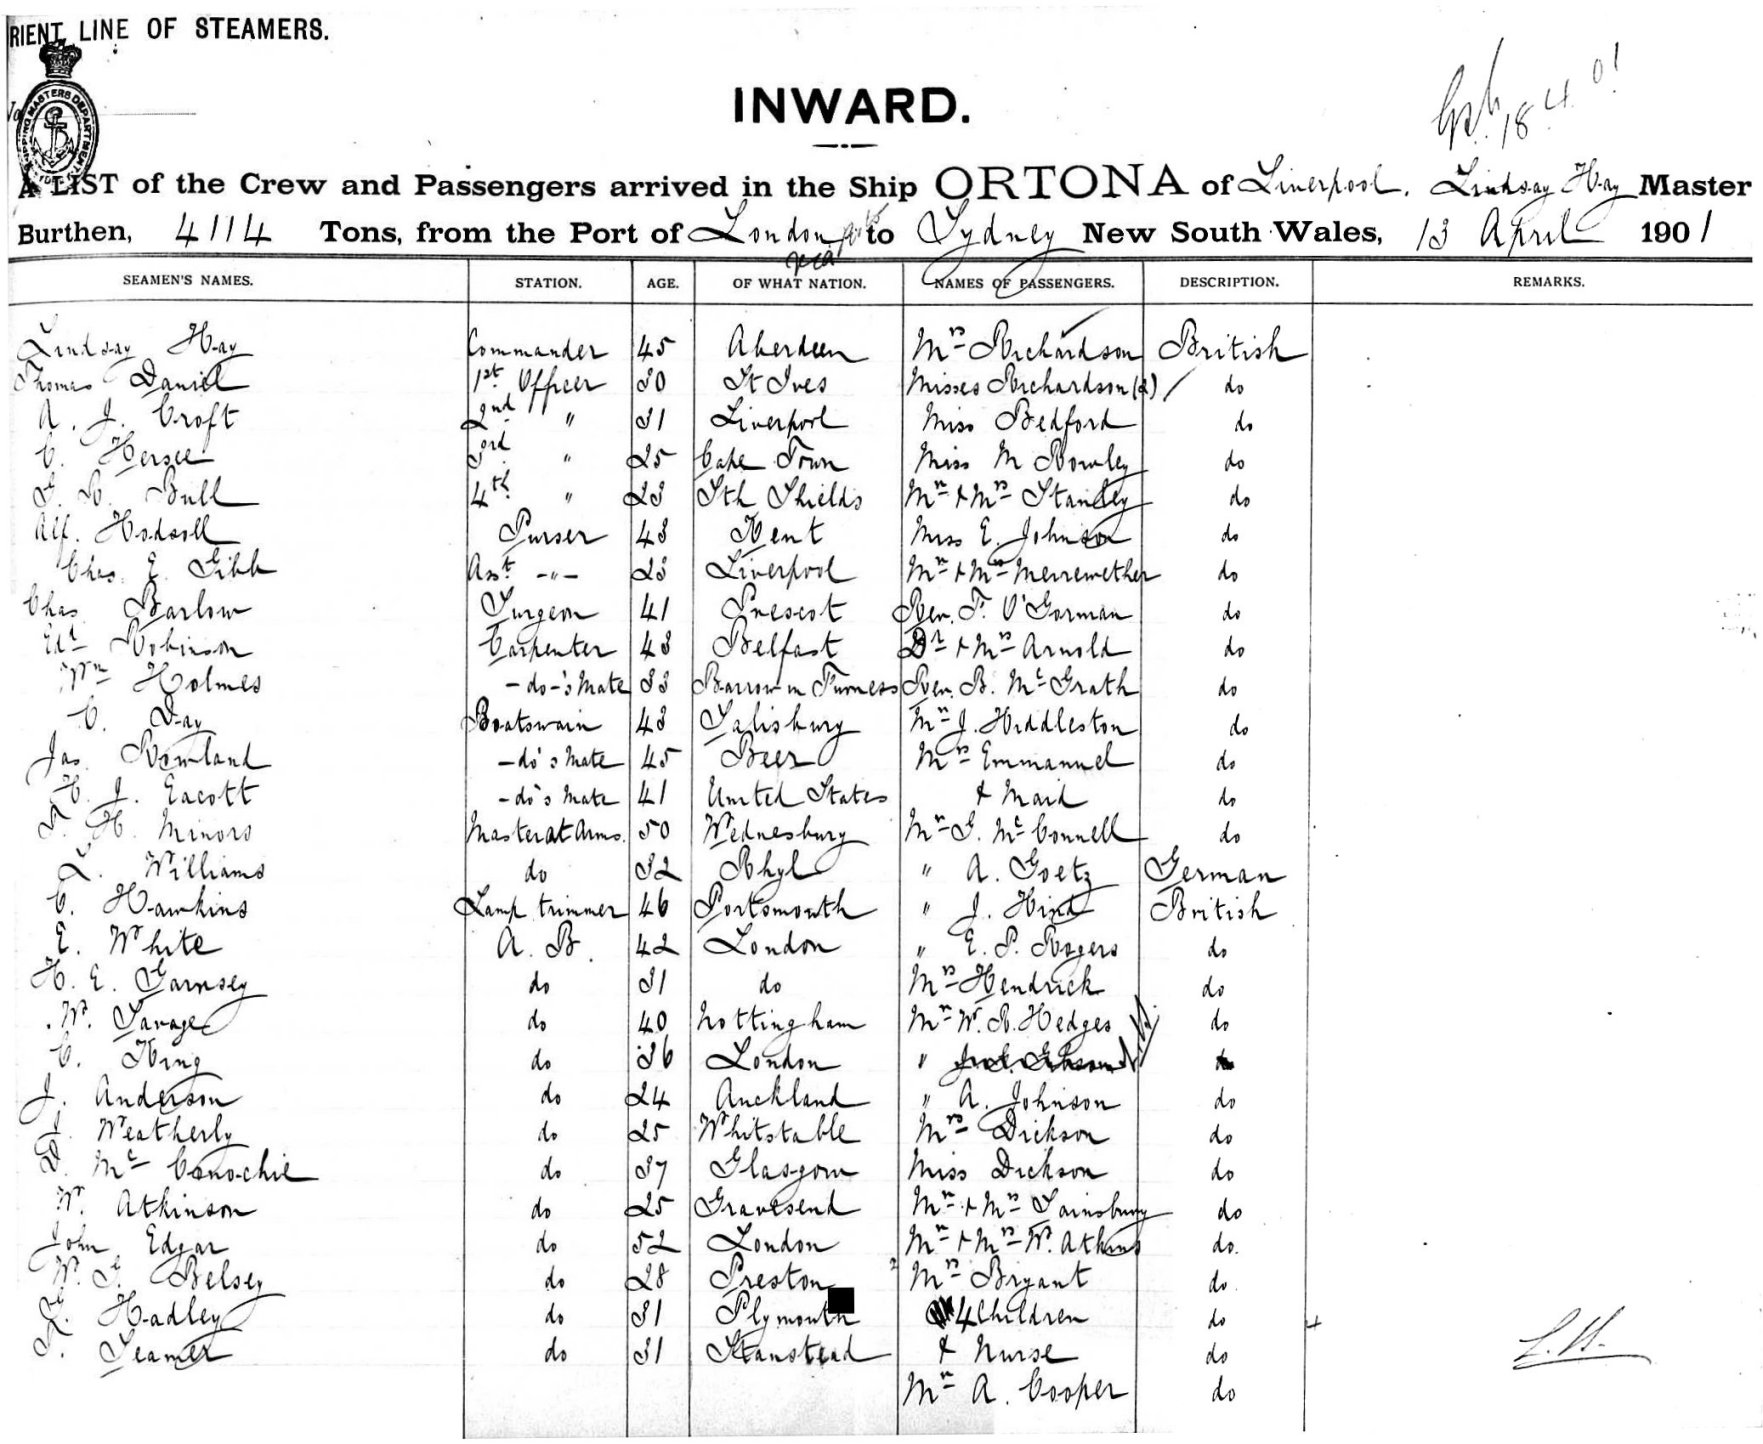 RIENT LINE OF STEAMERS.
INWARD.
18 4 01
A LIST of the Crew and Passengers arrived in the Ship ORTONA of Liverpool. Lindsay Hay Master
Burthen, 4114 Tons, from the Port of London to Sydney New South Wales, 13 April 1901
via
SEAMEN'S NAMES. STATION. AGE. OF WHAT NATION. NAMES OF PASSENGERS. DESCRIPTION. REMARKS.
Lindsay Hay Commander 45 Aberdeen Mrs Richardson British
Thomas Daniel 1st Officer 30 St Ives Misses Richardson (2) do
A. J. Croft 2nd " 31 Liverpool Miss Bedford do
C. Hersee 3rd " 25 Cape Town Miss M Rowley do
R. Bull 4th " 23 Sth Shields Mr + Mrs Stanley do
Alf. Hodsoll Purser 43 Kent Miss E. Johnson do
Chas. E. Gibb Asst -"- 23 Liverpool Mr + Mrs Merrewether do
Chas Barlow Surgeon 41 Prescot Rev. F. O'Gorman do
Ed Robinson Carpenter 43 Belfast Dr + Mrs Arnold do
Wm Holmes -do-'s Mate 33 Barrow in Furness Rev. B. McGrath do
C. Day Boatswain 43 Salisbury Mr J. Hiddleston do
Jas. Rowland -do's Mate 45 Beer Mrs Emmanuel do
H. J. Eacott -do's Mate 41 United States + Maid do
H. Minors Master at Arms. 50 Wednesbury Mr G. McConnell do
Williams do 32 Rhyl " A. Goetz German
C. Hawkins Lamp trimmer 46 Portsmouth " J. Hind British
E. White A. B. 42 London " E. P. Rogers do
H. E. Garnsey do 31 do Mrs Hendrick do
W. Savage do 40 Nottingham Mr W. R. Hedges do
C. King do 36 London "
J. Anderson do 24 Auckland " A. Johnson do
J. Weatherly do 25 Whitstable Mrs Dickson do
D. McConochie do 37 Glasgow Miss Dickson do
W. Atkinson do 25 Gravesend Mr + Mrs Sainsbury do
John Edgar do 52 London Mr + Mrs W. Atkins do.
W. G. Belsey do 28 Preston Mrs Bryant do
Hadley do 31 Plymouth 4 Children do
Seamer do 31 Stanstead + Nurse do
Mr A. Cooper do
L.H.